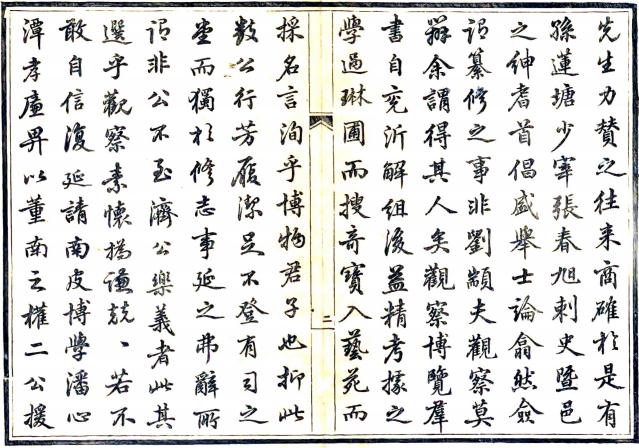 先生力贊之往来商確於是有
孫蓮塘少宰張春旭刺史暨邑
之紳耆首倡盛舉士論翕然僉
謂纂修之事非劉顓夫觀察莫
辦余謂得其人矣觀察博覽羣
書自兗沂解組後益精考據之
學過琳圃而搜奇寶入藝苑而
採名言洵乎博物君子也抑此
數公行芳履潔足不登有司之
堂而獨於修志事延之弗辭所
謂非公不至濟公樂義者此其
選乎觀察素懷撝謙兢〻若不
敢自信復延請南皮博學潘心
潭孝廉畀以董南之權二公援